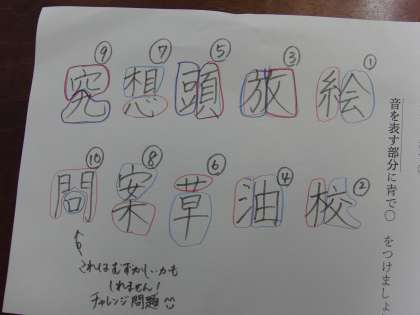 音を表す部分に青で○をつけましょ
① 絵
② 校
③ 旅
④ 油
⑤ 頭
⑥ 草
⑦ 想
⑧ 案
⑨ 究
⑩ 問
これはむずかしいかも
しれません!
チャレンジ問題